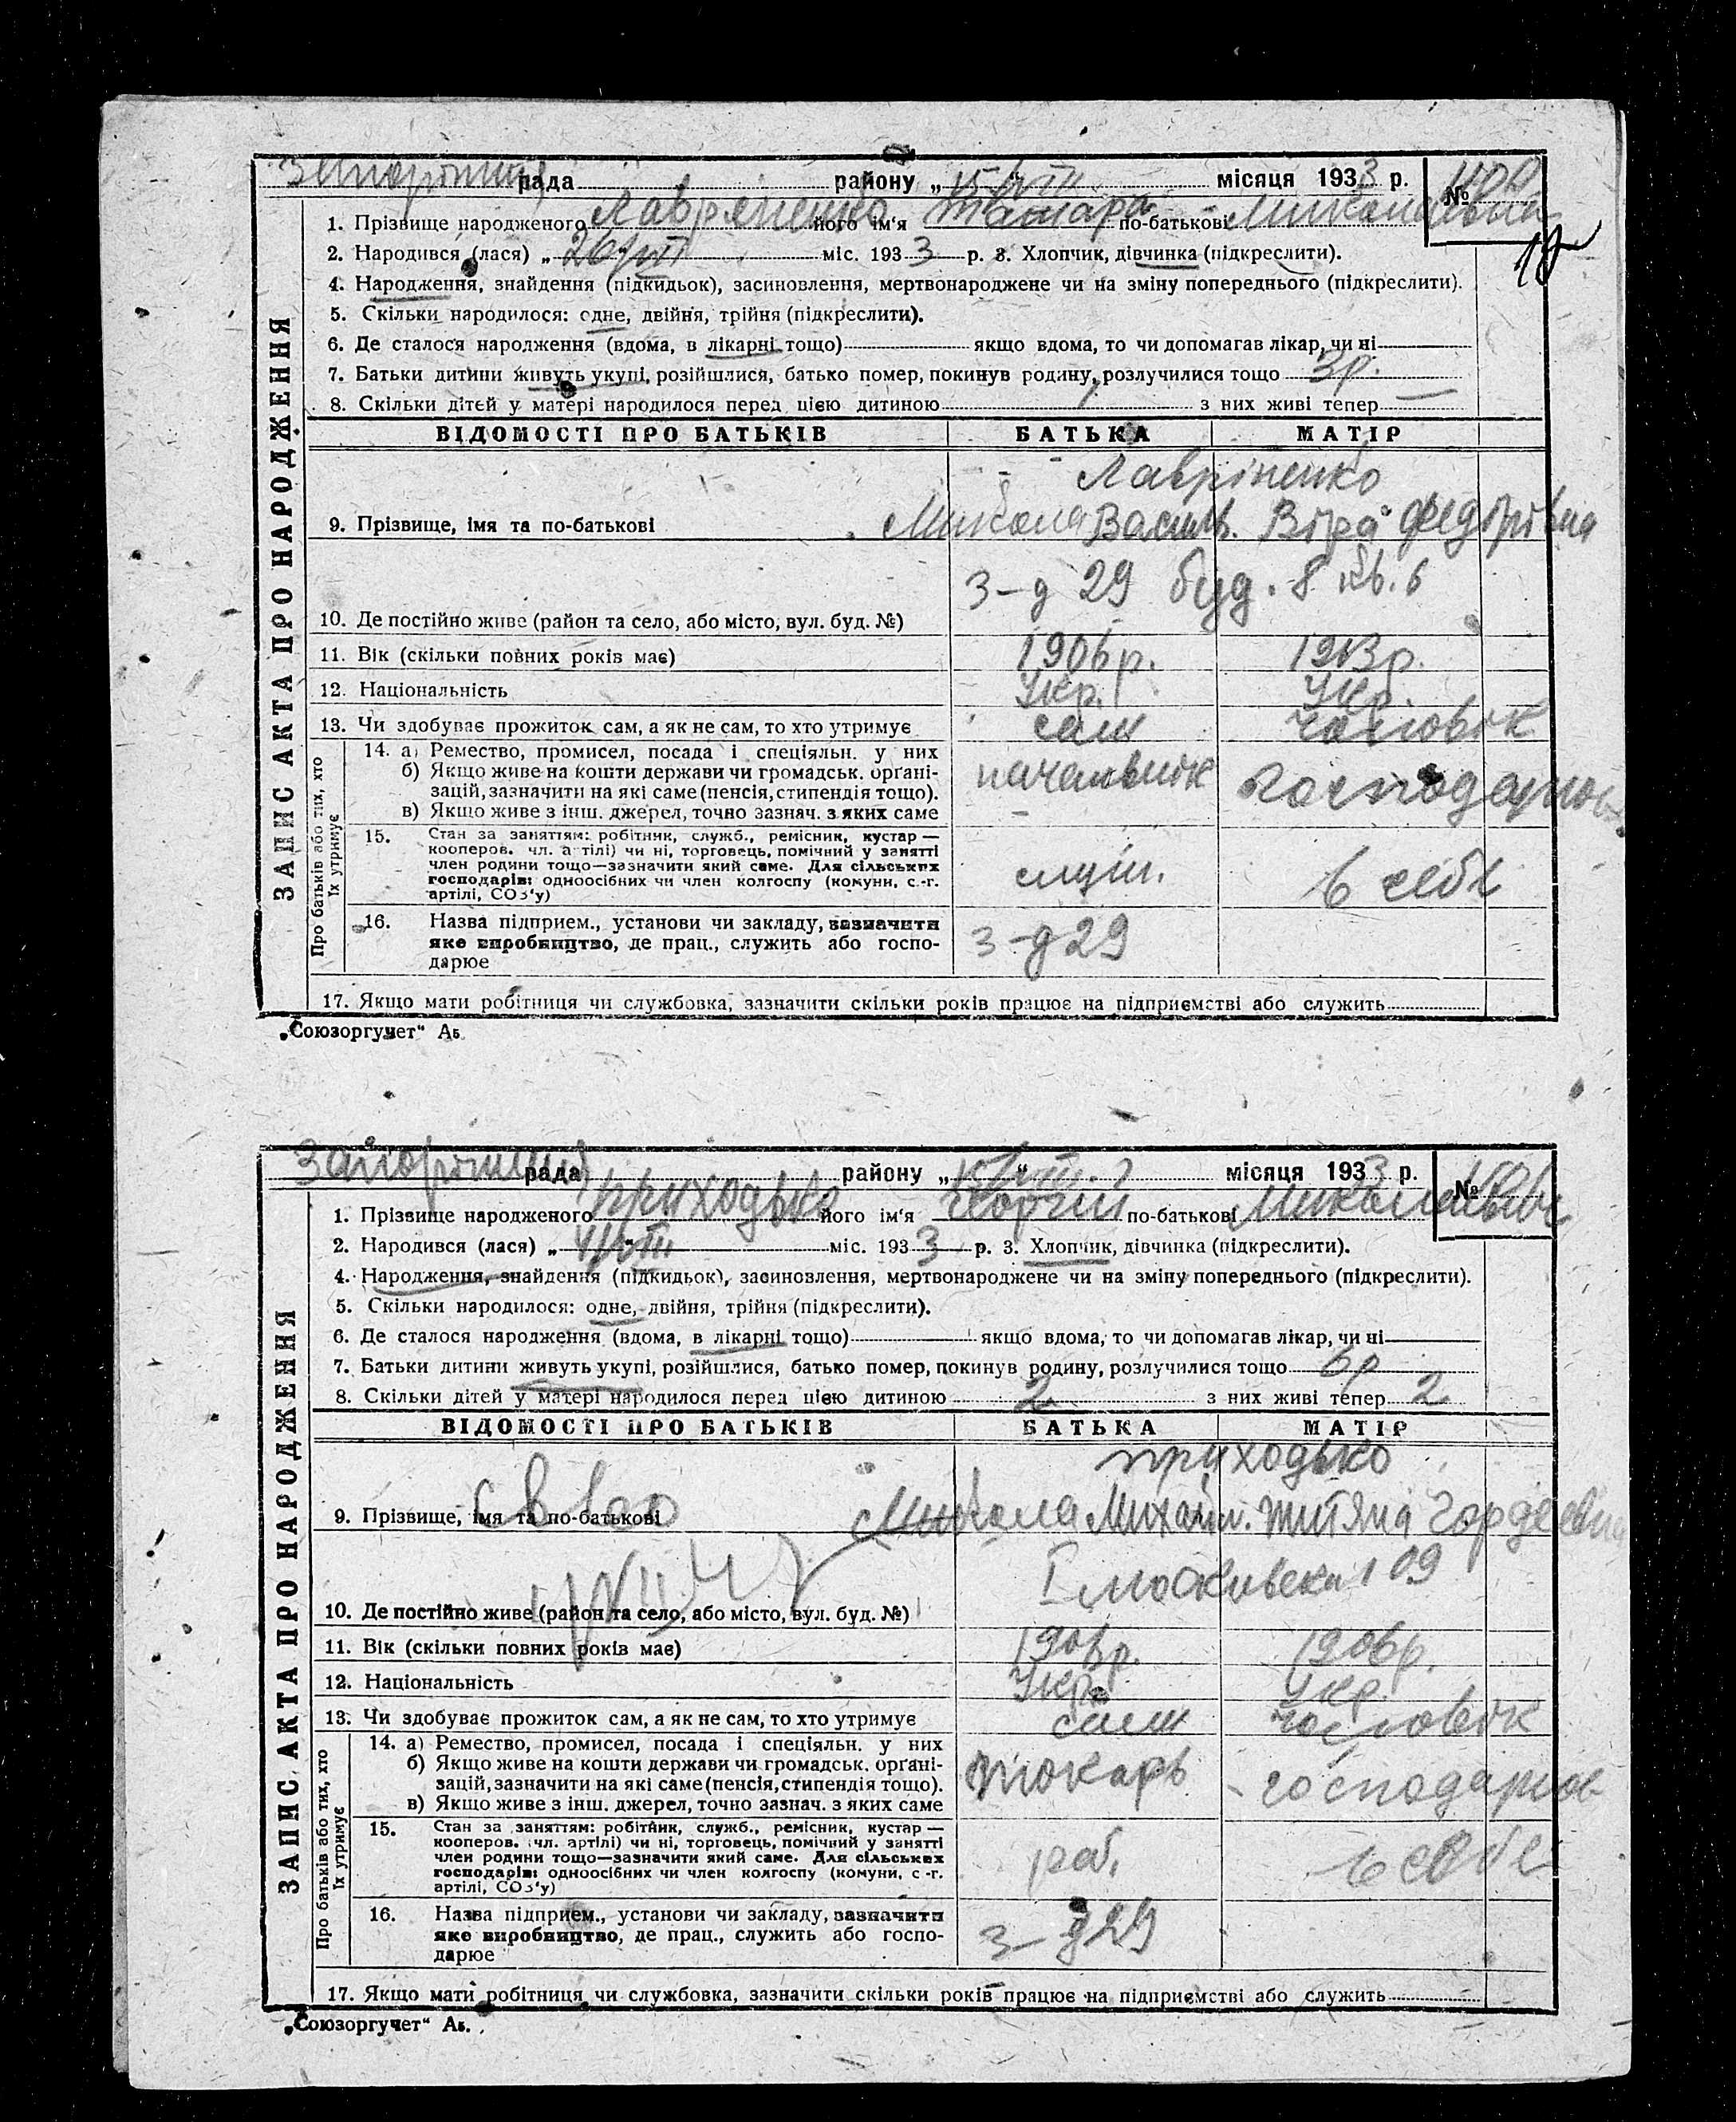 рада района „15“ VIII місяця 1933 р. №
1. Прізвище народженого Лавріненко його ім‘я Тамара по-батькові Миколаївна
2. Народився (лася) „26“ VII міс. 1933 р. 3. Хлопчик, дівчинка (підкреслити).
4. Народження, знайдення (підкидьок), засиновлення, мертвонароджене чи на зміну попереднього (підкреслити).
5. Скільки народилося: одне, двійня, трійня (підкреслити).
6. Де сталося народження (вдома, в лікарні тощо) якщо вдома, то чи допомагав лікар, чи ні
7. Батьки дитини живуть укупі, розійшлися, батько помер, покинув родину, розлучилися тощо 3 р.
8. Скільки дітей у матері народилося перед цією дитиною 1 з них живі тепер —
ЗАПИС АКТА ПРО НАРОДЖЕННЯ
ВІДОМОСТІ ПРО БАТЬКІВ БАТЬКА МАТІР
Лавріненко
9. Прізвище, імя та по-батькові Микола Василь. Віра Федорівна
З-д 29 буд. 8 кв. 6
10. Де постійно живе (район та село, або місто, вул. буд. №)
11. Вік (скільки повних років має) 1906 р. 1913 р.
12. Національність Укр. Укр.
13. Чи здобуває прожиток сам, а як не сам, то хто утримує сам чоловік
Про батьків або тих, хто їх утримує
14. а) Ремество, промисел, посада і спеціяльн. у них
б) Якщо живе на кошти держави чи громадськ. органі-
зацій, зазначити на які саме (пенсія, стипендія тощо). начальник господарюв
в) Якщо живе з інш. джерел, точно зазнач. з яких саме
15. Стан за заняттям: робітник, служб., ремісник, кустар —
кооперов. чл. артілі) чи ні, торговець, помічний у занятті
член родини тощо—зазначити який саме. Для сільських
господарів: одноосібних чи член колгоспу (комуни, с.-г. служ. в себе
артілі, СОЗ‘у)
16. Назва підприєм., установи чи закладу, зазначити
яке виробництво, де прац., служить або госпо- З-д 29
дарює
17. Якщо мати робітниця чи службовка, зазначити скільки років працює на підприємстві або служить
„Союзоргучет“ Аб.
рада району „15“ VIII місяця 1933 р. №
1. Прізвище народженого Приходько його ім‘я Георгій по-батькові Миколаєвіч
2. Народився (лася) „4“ VIII міс. 1933 р. 3. Хлопчик, дівчинка (підкреслити).
4. Народження, знайдення (підкидьок), засиновлення, мертвонароджене чи на зміну попереднього (підкреслити).
5. Скільки народилося: одне, двійня, трійня (підкреслити).
6. Де сталося народження (вдома, в лікарні тощо) якщо вдома, то чи допомагав лікар, чи ні
7. Батьки дитини живуть укупі, розійшлися, батько помер, покинув родину, розлучилися тощо 6 р
8. Скільки дітей у матері народилося перед цією дитиною 2 з них живі тепер 2
ЗАПИС АКТА ПРО НАРОДЖЕННЯ
ВІДОМОСТІ ПРО БАТЬКІВ БАТЬКА МАТІР
Приходько
9. Прізвище, імя та по-батькові Микола Михайл. Гордеевна
109
10. Де постійно живе (район та село, або місто, вул. буд. №)
11. Вік (скільки повних років має) 1906 р.
12. Національність Укр. Укр.
13. Чи здобуває прожиток сам, а як не сам, то хто утримує сам чоловік
Про батьків або тих, хто їх утримує
14. а) Ремество, промисел, посада і спеціяльн. у них
б) Якщо живе на кошти держави чи громадськ. органі-
зацій, зазначити на які саме (пенсія, стипендія тощо). токарь господарюв
в) Якщо живе з інш. джерел, точно зазнач. з яких саме
15. Стан за заняттям: робітник, служб., ремісник, кустар —
кооперов. чл. артілі) чи ні, торговець, помічний у занятті
член родини тощо—зазначити який саме. Для сільських
господарів: одноосібних чи член колгоспу (комуни, с-г. роб. в себе
артілі, СОЗ‘у)
16. Назва підприєм., установи чи закладу, зазначити
яке виробництво, де прац., служить або госпо- З-д 29
дарює
17. Якщо мати робітниця чи службовка, зазначити скільки років працює на підприємстві або служить
„Союзоргучет“ Аб.